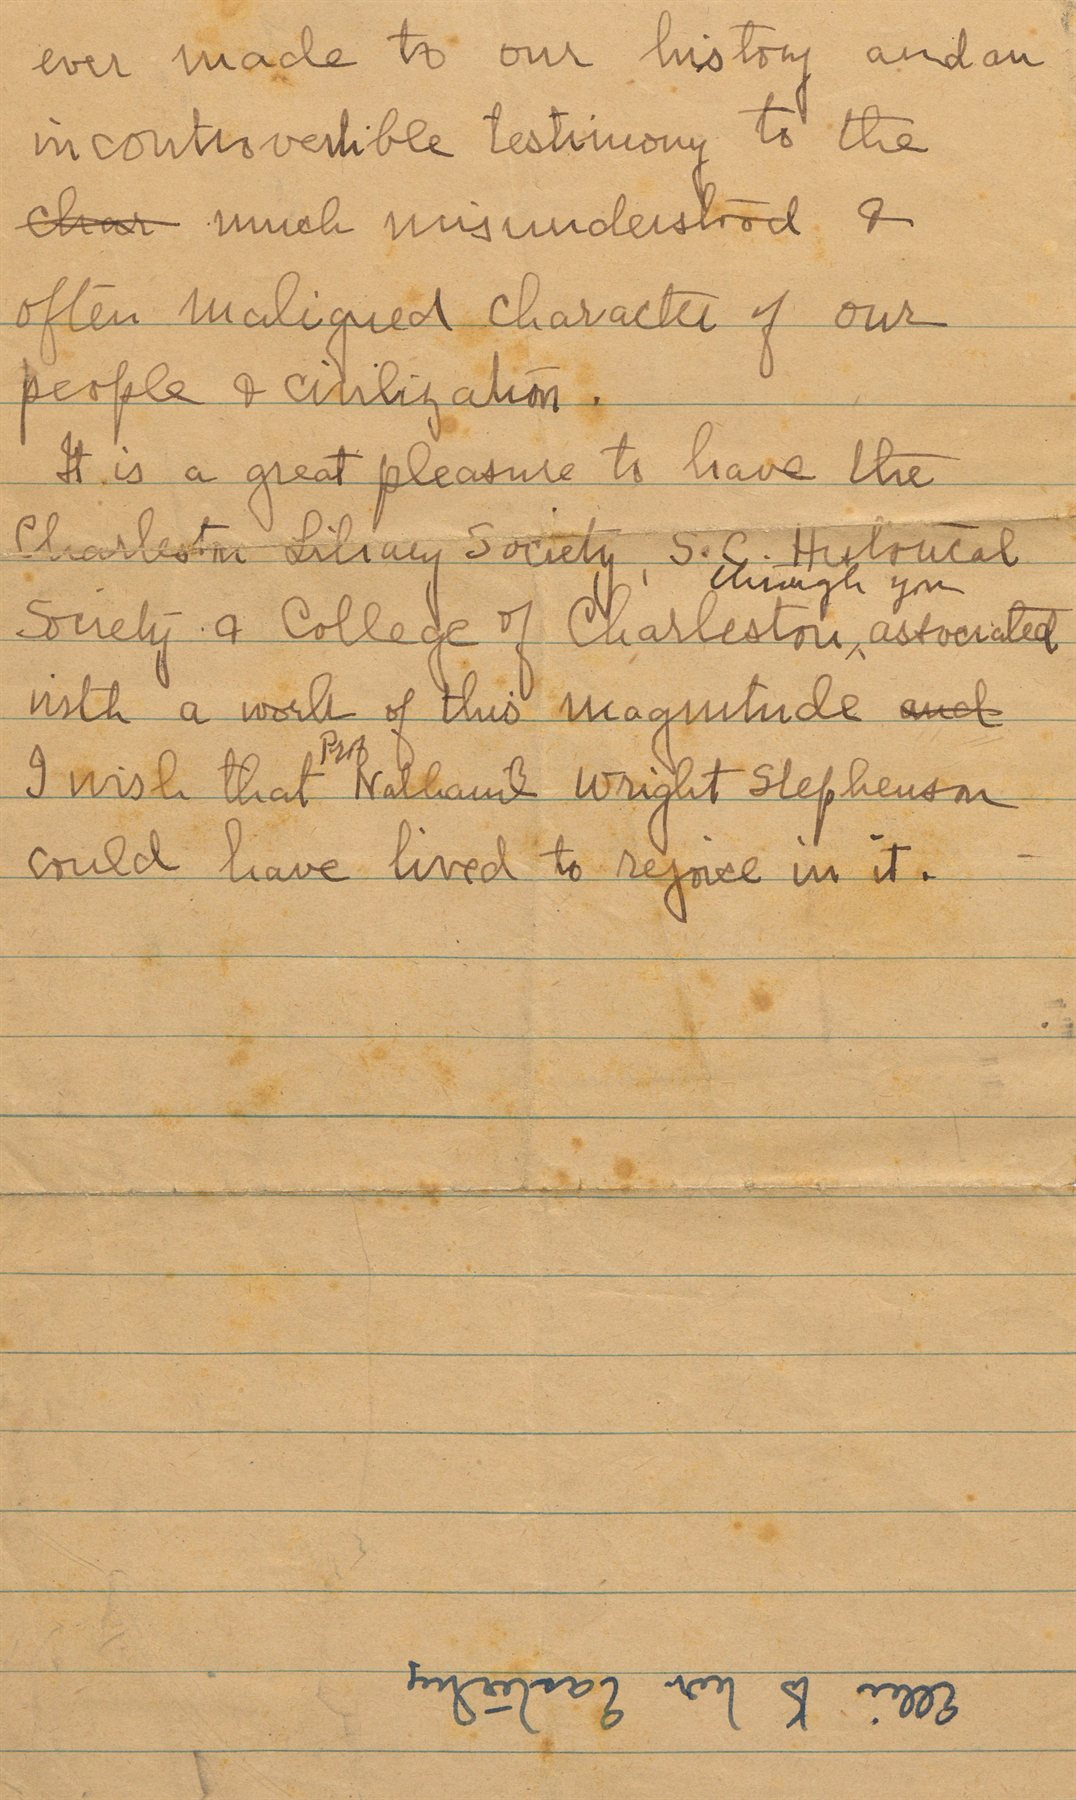 ever made to our history and an
incontrovertible testimony to the
char much misunderstood &
often maligned character of our
people & civilization.
It is a great pleasure to have the
Charleston Library Society, S.C. Historical
through you
Society & College of Charleston, associated
with a work of this magnitude and
Prof
I wish that Nathaniel Wright Stephenson
could have lived to rejoice in it.
Ellen to Mr. Easterby